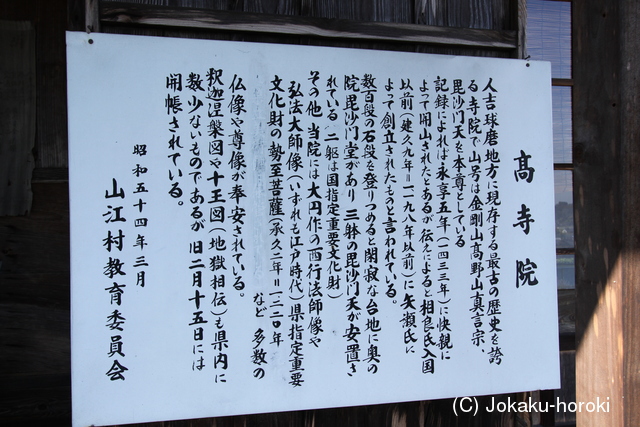 高寺院
人吉球磨地方に現存する最古の歴史を誇
る寺院で山号は金剛山高野山真言宗、
毘沙門天を本尊としている
記録によれば永享五年(一四三三年)に快親に
よって開山されたとあるが伝えによると相良氏入国
以前(建久九年=一一九八年以前)に矢瀬氏に
よって創立されたものと言われている。
数百段の石段を登りつめると閑寂な台地に奥の
院毘沙門堂があり三躰の毘沙門天が安置さ
れている 二躯は国指定重要文化財)
その他当院には大円作の西行法師像や
弘法大師像(いずれも江戸時代)県指定重要
文化財の勢至菩薩(承久二年=一二二〇年
など多数の
仏像や尊像が奉安されている。
釈迦涅槃図や十王図(地獄相伝)も県内に
数少ないものであるが旧二月十五日には
開帳されている。
昭和五十四年三月
山江村教育委員会
(C) Jokaku-horoki